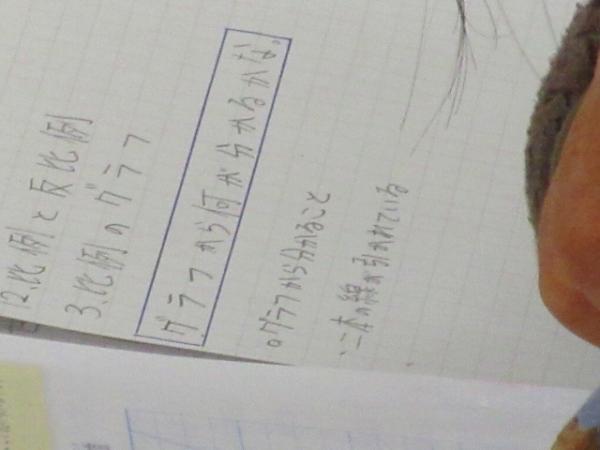 12.比例と反比例
3.比例のグラフ
グラフから何が分かるかな。
○グラフから分かること
・二本の線が引かれている
・